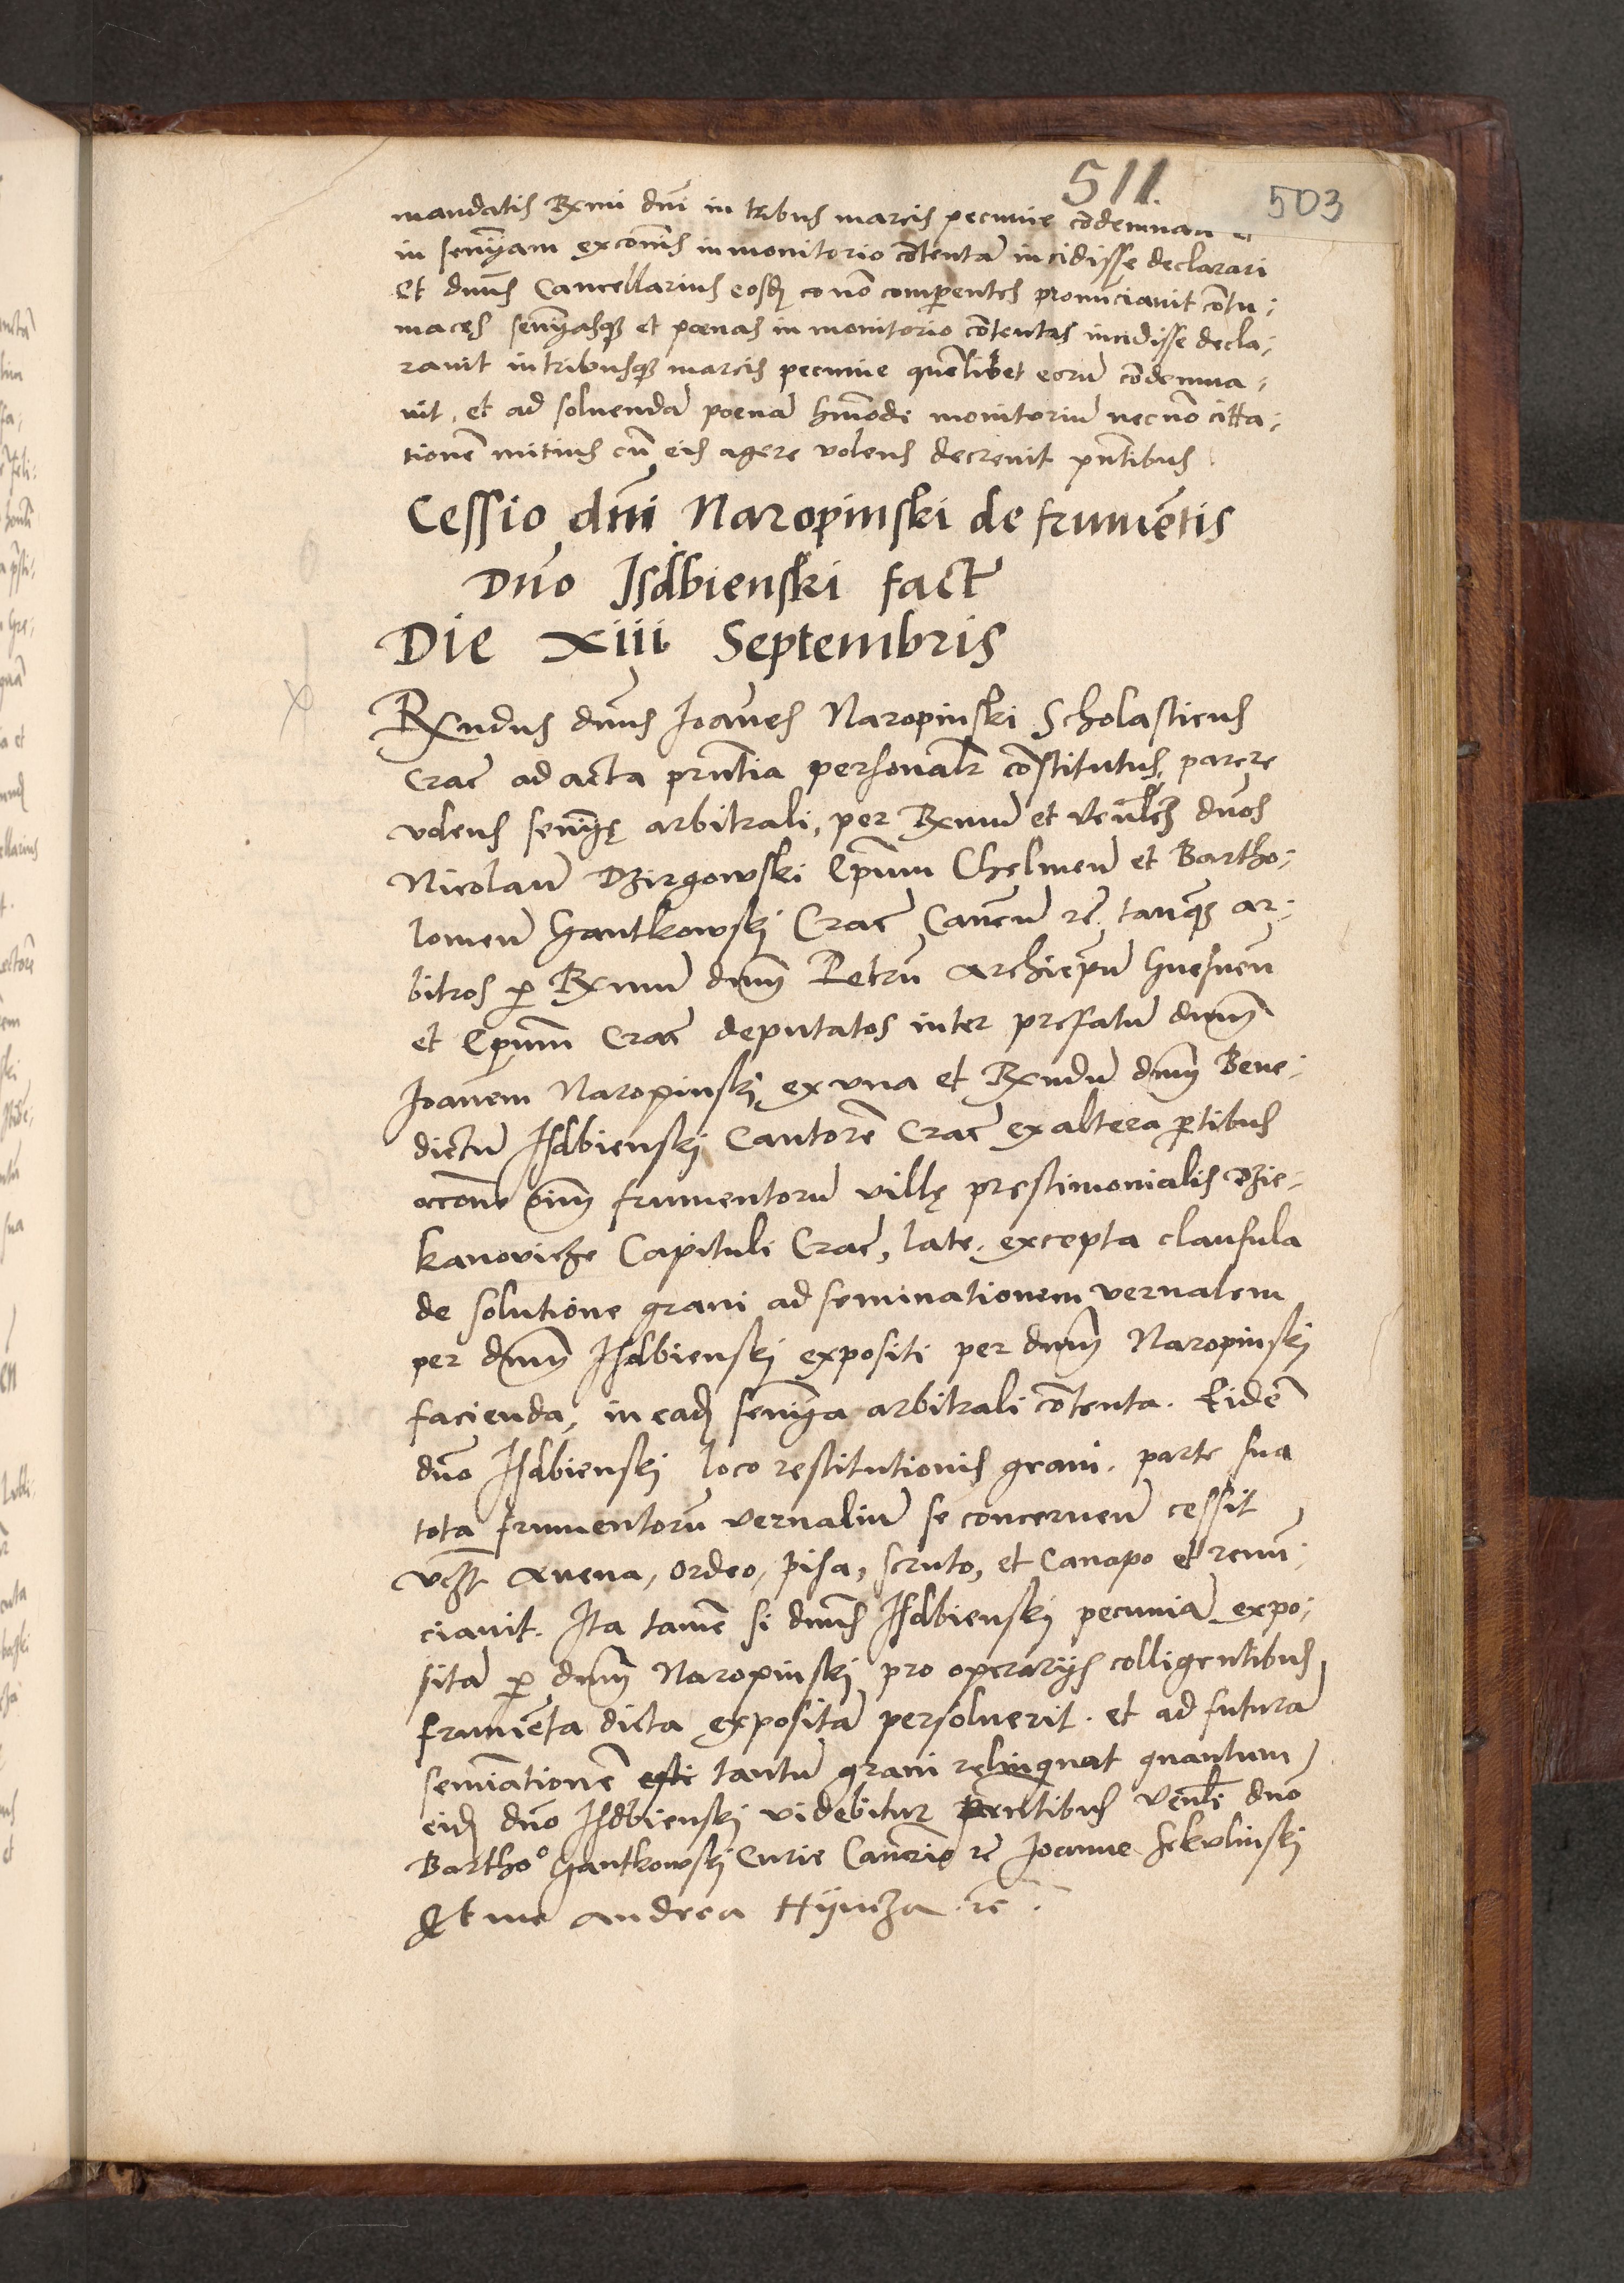 511.
503
mandatis Rxmi dnī in tribus marcis pecunie cōdemnari et
in senīam exconīs in monitorio cōtentā incidisse declarari
Et dnūs Cancellarius eosd co nō comp̄entes pronūciavit cōtu¡
maces senīasq et pœnas in monitorio cōtentas incidisse decla¡
ravit in tribusq marcis pecunie quēlibet eorū cōdemna¡
vit, et ad solvendā poenā hmōdi monitoriū necnō citta¡
tionē mitius cū eis agere volens decrevit pn̄tibus
Cessio dnī Naropinski de frumētis
Dno Isdbienski fact
Die xiii Septembris
Rxndus dnus Ioānes Naropinski Scholasticus
Crac̄ ad acta prn̄tia personalr cōstitutus, parere
volens senīę arbitrali, per Rxmū et Venl̄es dnōs
Nicolaū Dzirgowski Ep̄um Chelmeñ et Bartho¡
lomeū Gantkowski Crac̄ Canc̄ū rc̄ tanq ar¡
bitros p Rxmū dnūm Petrū Archiep̄ū Gnesneñ
et Ep̄um Crac̄ deputatos inter prefatū dnūm
Ioānem Naropinski ex una et Rxndū dnūm Bene¡
dictū Isdbienski Cantorē Crac̄ ex altera p̄tibus
occōne oīm frumentorū villę pręstimonialis Dzie¡
kanovicze Capituli Crac̄, late, excepta clausula
de solutione grani ad seminationem vernalem
per dnūm Isdbienski expositi per dnūm Naropinski
facienda, in ead senīa arbitrali cōtenta. Eidē
dnō Isdbienski loco restitutionis grani, parte sua
tota frumentorū vernaliū se concerneñ cessit
vczt Avena, ordeo, pisa, scruto, et Canapo et renū¡
ciavit. Ita tamē si dnūs Isdbienski pecuniā expo¡
sitā p dnūm Naropinski pro operarijs colligentibus
frumēta dicta expositā persolverit. et ad futurā
semiātionē tantū grani relinquat quantum
eid dnō Isdbienski videbitur prn̄tibus Venl̄i dnō
Bartho° Gantkowski Curie Canc̄rio rc̄ Ioanne Sekulinski
Et me Andrea Hyncza rc̄.